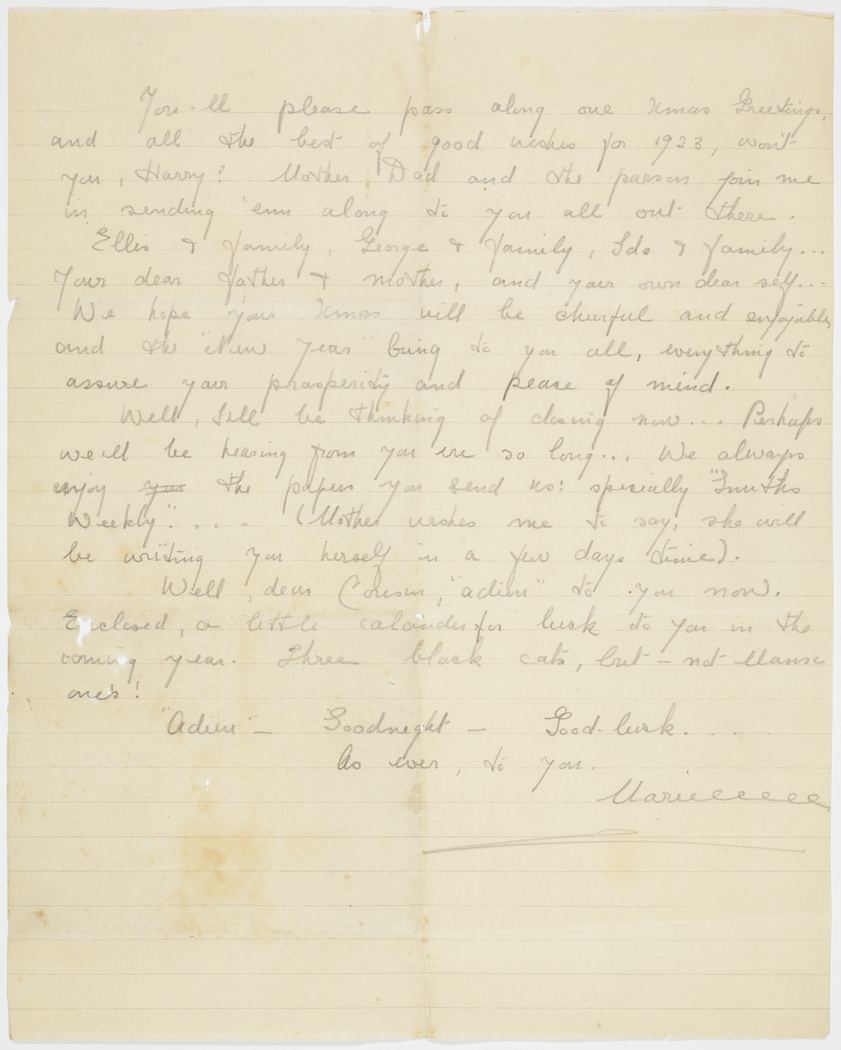 You'll please pass along our Xmas Greetings,
and all the best of good wishes for 1923, won't
you, Harry? Mother, Dad and the parson join me
in sending 'em along to you all out there.
Ellis & family, George & family, Ida & family...
Your dear father & mother, and your own dear self...
We hope your Xmas will be cheerful and enjoyable,
and the "New Year" bring to you all, everything to
assure your prosperity and peace of mind.
Well, I'll be thinking of closing now... Perhaps
we'll be hearing from you ere so long... We always
enjoy your the papers you send us: specially "Smiths
Weekly"....  (Mother wishes me to say, she will
be writing you herself in a few days time).
Well, dear Cousin, "adieu" to you now.
Enclosed, a little calander for luck to you in the
coming year. Three black cats, but — not Manx
ones!
"Adieu" — Goodnight — Good-luck.....
As ever, to you.
Marieeeeee